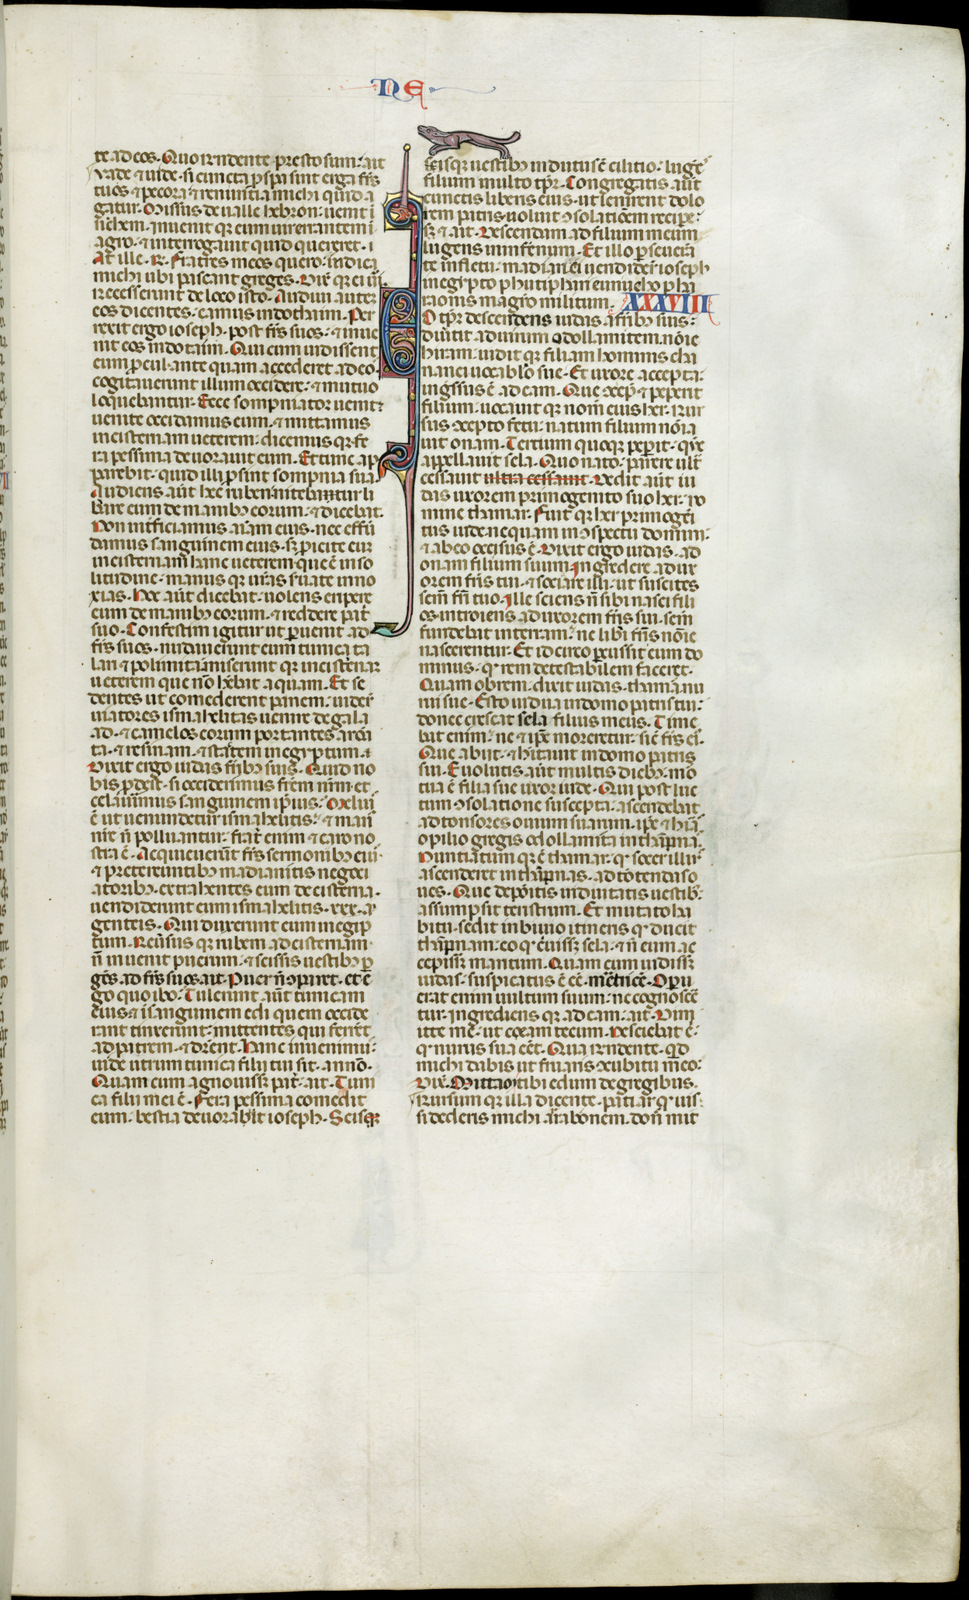 NE
te ad eos. Quo respondente presto sum: ait
vade & uide. si cuncta prospera sunt erga fratres
tuos & pecora: & renuncia michi quid a
gatur. Missus de ualle hebron: uenit i
sichem. inuenit que eum uir errantem i
agro. & interrogauit quid quereret. i
At ille. R. Fratres meos quero. indica
michi ubi pascant greges. Dixit que ei uir.
recesserunt de loco isto. Audiui autem
eos dicentes. eamus in dothaim. Per
rexit ergo ioseph. post fratres suos. & inue
nit eos in dotaim. Qui cum uidissent
eum procul. ante quam accederet ad eos
cogitauerunt illum occidere. & mutuo
loquebantur. Ecce sompniator uenit:
uenite occidamus eum. & mittamus
in cisternam ueterem: dicemus que fe
ra pessima deuorauit eum. Et tunc ap
parebit. quid illi prosint sompnia sua.
Audiens autem hec ruben: nitebatur li
berare eum de manibus eorum. & dicebat.
Non interficiamus animam eius. nec effun
damus sanguinem eius. sed proicite eum
in cisternam hanc ueterem que est in so
litudine. manus que uestras seruate inno
xias. Hec autem dicebat: uolens eripere
eum de manibus eorum. & reddere patri
suo. Confestim igitur ut peruenit ad
fratres suos. nudauerunt eum tunica ta
lari & polimita: miserunt que in cisternam
ueterem que non habebat aquam. Et se
dentes ut comederent panem: uider
uiatores ismahelitas uenire de gala
ad. & camelos eorum portantes aroma
ta. & resinam. & stactem in egyptum.
Dixit ergo iudas fratribus suis. Quid no
bis prodest. si occiderimus fratrem nostrum. et
celauerimus sanguinem ipsius. Melius
est ut uenundetur ismahelitis: & man
nostre non polluantur. frater enim & caro no
stra est. Acquieuerunt fratres sermonibus eius.
& pretereuntibus madianitis negoci
atoribus. extrahentes eum de cisterna.
uendiderunt eum ismahelitis. xxx. ar
genteis. Qui duxerunt eum in egip
tum. Reuersus que ruben ad cisternam:
non inuenit puerum. & scissis uestibus per
gens ad fratres suos ait. Puer non comparet. et ego
go quo ibo: Tulerunt autem tunicam
eius & in sanguinem edi quem occide
rant tinxerunt: mittentes qui ferrent
ad patrem. & dicerent. Hanc inuenimus:
uide utrum tunica filii tui sit. an non.
Quam cum agnouisset pater. ait. Tuni
ca filii mei est. Fera pessima comedit
eum. bestia deuorabit ioseph. Scisque
scisque uestibus indutus est cilicio. luge
filium multo tempore. Congregatis autem
cunctis liberis eius. ut lenirent dolo
rem patris: noluit consolationem recipe
sed & ait. Descendam ad filium meum
lugens in infernum. Et illo perseueran
te in fletu. madianei uendiderunt ioseph
in egypto phutiphari eunucho pha
raonis magistro militum. XXXVIII
O tempore descendens iudas a fratribus suis:
diuertit ad uirum odollamitem nomine
hiram. uidit que filiam hominis cha
nanei uocabulo sue. Et uxore accepta:
ingressus est ad eam. Que concepit & peperit
filium. uocauit que nomen eius her. rur
sus concepto fetu: natum filium nomina
uit onam. Tertium quoque peperit. quem
appellauit sela. Quo nato: parere ultra
cessauit ultra cessauit. Dedit autem iu
das uxorem primogenito suo her. no
mine thamar. Fuit que her primogeni
tus iude nequam in conspectu domini.
& ab eo occisus est. Dixit ergo iudas. ad
onam filium suum. Ingredere ad ux
orem fratris tui. & sociare illi: ut suscites
semen fratri tuo. Ille sciens non sibi nasci fili
os. introiens ad uxorem fratris sui. semen
fundebat in terram: ne liberi fratris nomine
nascerentur. Et idcirco percussit eum do
minus. quod rem detestabilem faceret.
Quam obrem. dixit iudas. thamar nu
rui sue. Esto uidua in domo patris tui:
donec crescat sela filius meus. Time
bat enim: ne & ipse moreretur. sicut fratres ei.
Que abiit. & habitauit in domo patris
sui. Euolutis autem multis diebus: mo
tua est filia sue uxor iude. Qui post luc
tum consolatione suscepta: ascendebat
ad tonsores ouium suarum. ipse & hira
opilio gregis odollamita in thampna.
Nuntiatum que est thamar. quod socer illius
ascenderet in thampnas. ad tondendas o
ues. Que depositis uiduitatis uestibus:
assumpsit teristrum. Et mutato ha
bitu. sedit in biuio itineris que ducit
thampnam. eo quod creuisset sela. & non eum ac
cepisset maritum. Quam cum uidisset
iudas: suspicatus est esse meretricem. Operu
erat enim uultum suum: ne cognosce
tur. ingrediens que ad eam. ait. Dimi
tte me: ut coeam tecum. Nesciebat enim
quod nurus sua esset. Qua respondente. quid
michi dabis ut fruaris concubitu meo:
Dixit. Mittam tibi edum de gregibus.
Rursum que illa dicente. patiar quod uis:
si dederis michi arrabonem. donec mit